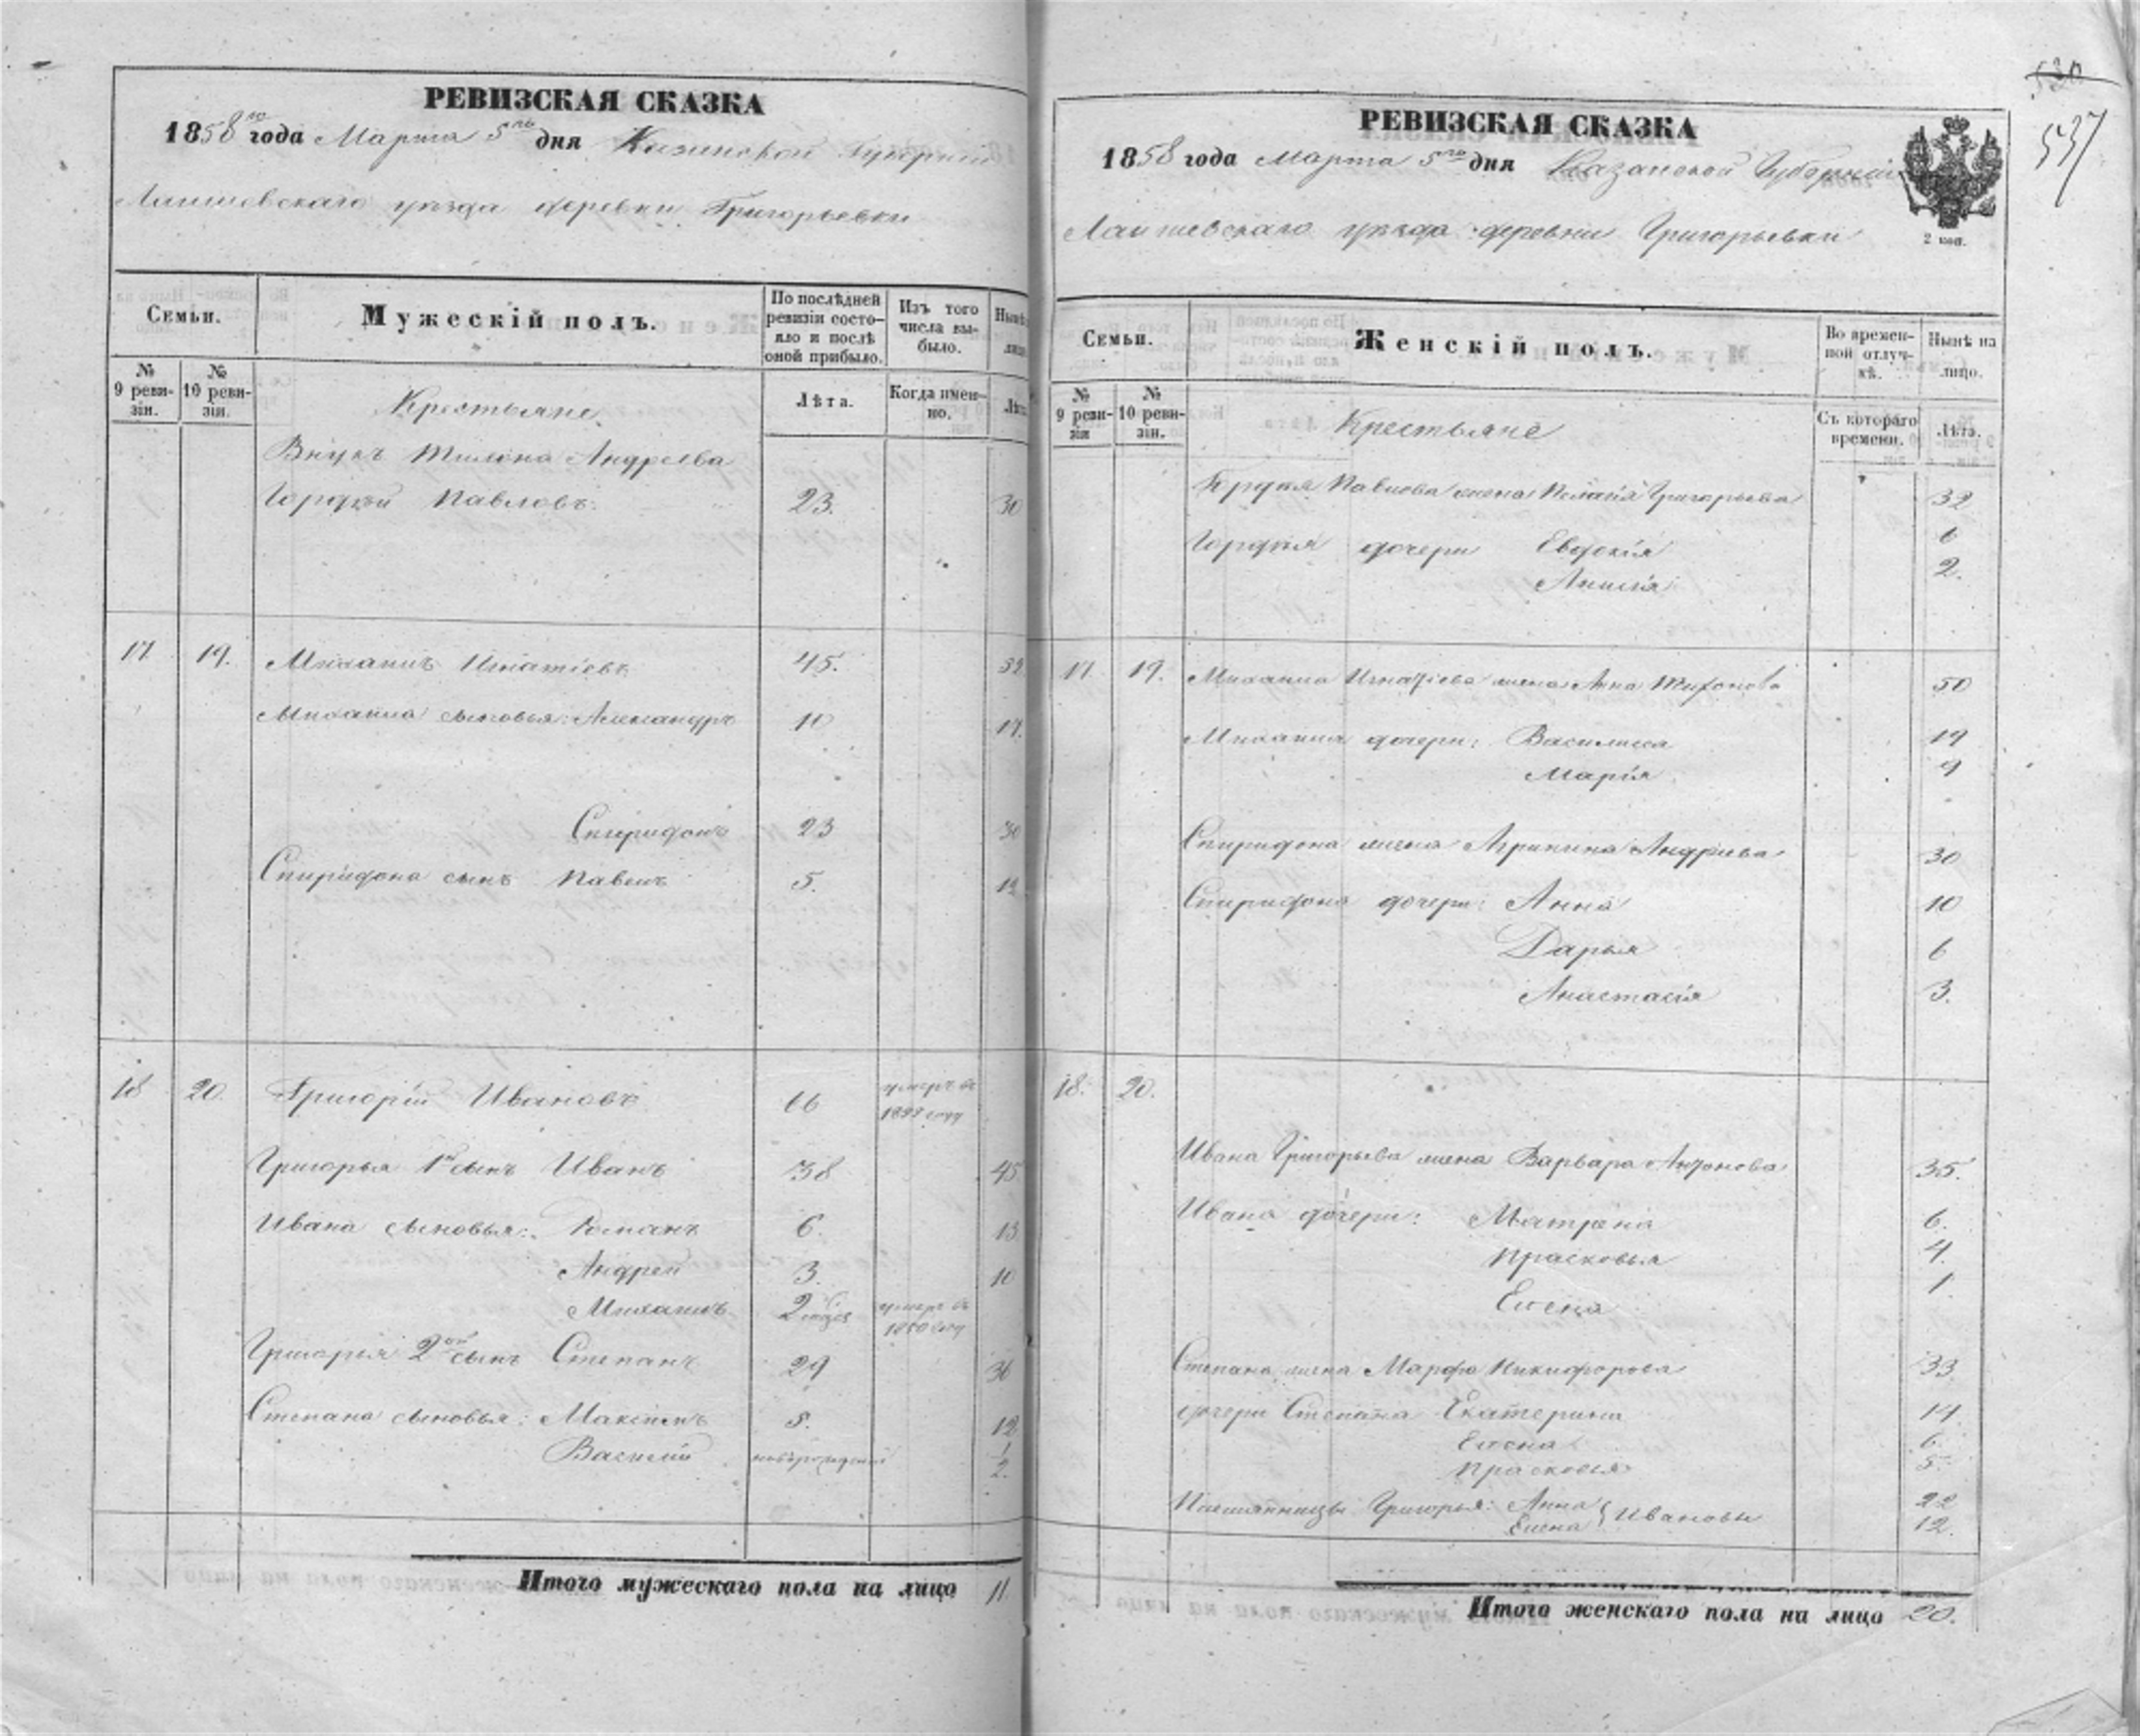 РЕВИЗСКАЯ СКАЗКА
1858го года Марта 5го дня Казанской Губерніи
Лаишевскаго уѣзда деревни Григорьевки
Семьи.
Мужескій полъ.
По послѣдней ревизіи состояло и послѣ оной прибыло.
Изъ того числа выбыло.
Нынѣ
№ 9 ревизіи.
№ 10 ревизіи.
Лѣта.
Когда именно.
Лѣта
Крестьяне
Внукъ Андреева
Гордѣй Павловъ 23. 30
17. 19. Михаилъ Игнатіевъ 45. 52
Михаила сыновья: Александръ 10 17.
Спиридонъ 23 30
Спиридона сынъ Павелъ 5. 12
18 20. Григорій Ивановъ 66 умеръ въ году
Григорья 1й сынъ Иванъ 38 45
Ивана сыновья: Романъ 6. 13
Андрей 3. 10
Михаилъ 2 умеръ въ 1850 году
Григорья 2ой сынъ Степанъ 29 36
Степана сыновья: Максимъ 5. 12
Василий новорожденый 1/2.
Итого мужескаго пола на лицо 11.
530
537
РЕВИЗСКАЯ СКАЗКА
1858 года Марта 5го дня Казанской Губерніи
Лаишевскаго уѣзда деревни Григорьевки
2 коп.
Семьи.
Женскій полъ.
Во временной отлучкѣ.
Нынѣ на лицо.
№ 9 ревизіи
№ 10 ревизіи.
Съ котораго времени.
Лѣта.
Крестьяне
Гордѣя Павлова жена Пелагія Григорьева 32
Гордѣя дочери Евдокія 6
Анисія 2.
17 19. Михаила Игнатіева жена Анна Тихонова 50
Михаила дочери: Василиса 19
Марія 9
Спиридона жена Агрипина Андриева 30
Спиридона дочери: Анна 10
Дарья 6
Анастасія 3.
18. 20.
Ивана Григорьева жена Варвара Антонова 35.
Ивана дочери: Матрена 6.
Прасковья 4.
Елена 1.
Степана жена Марфа Никифорова 33
дочери Степана Екатерина 14
Елена 6
Прасковья 5.
Племянницы Григорья: Анна 22
Елена } Ивановы 12.
Итого женскаго пола на лицо 20.